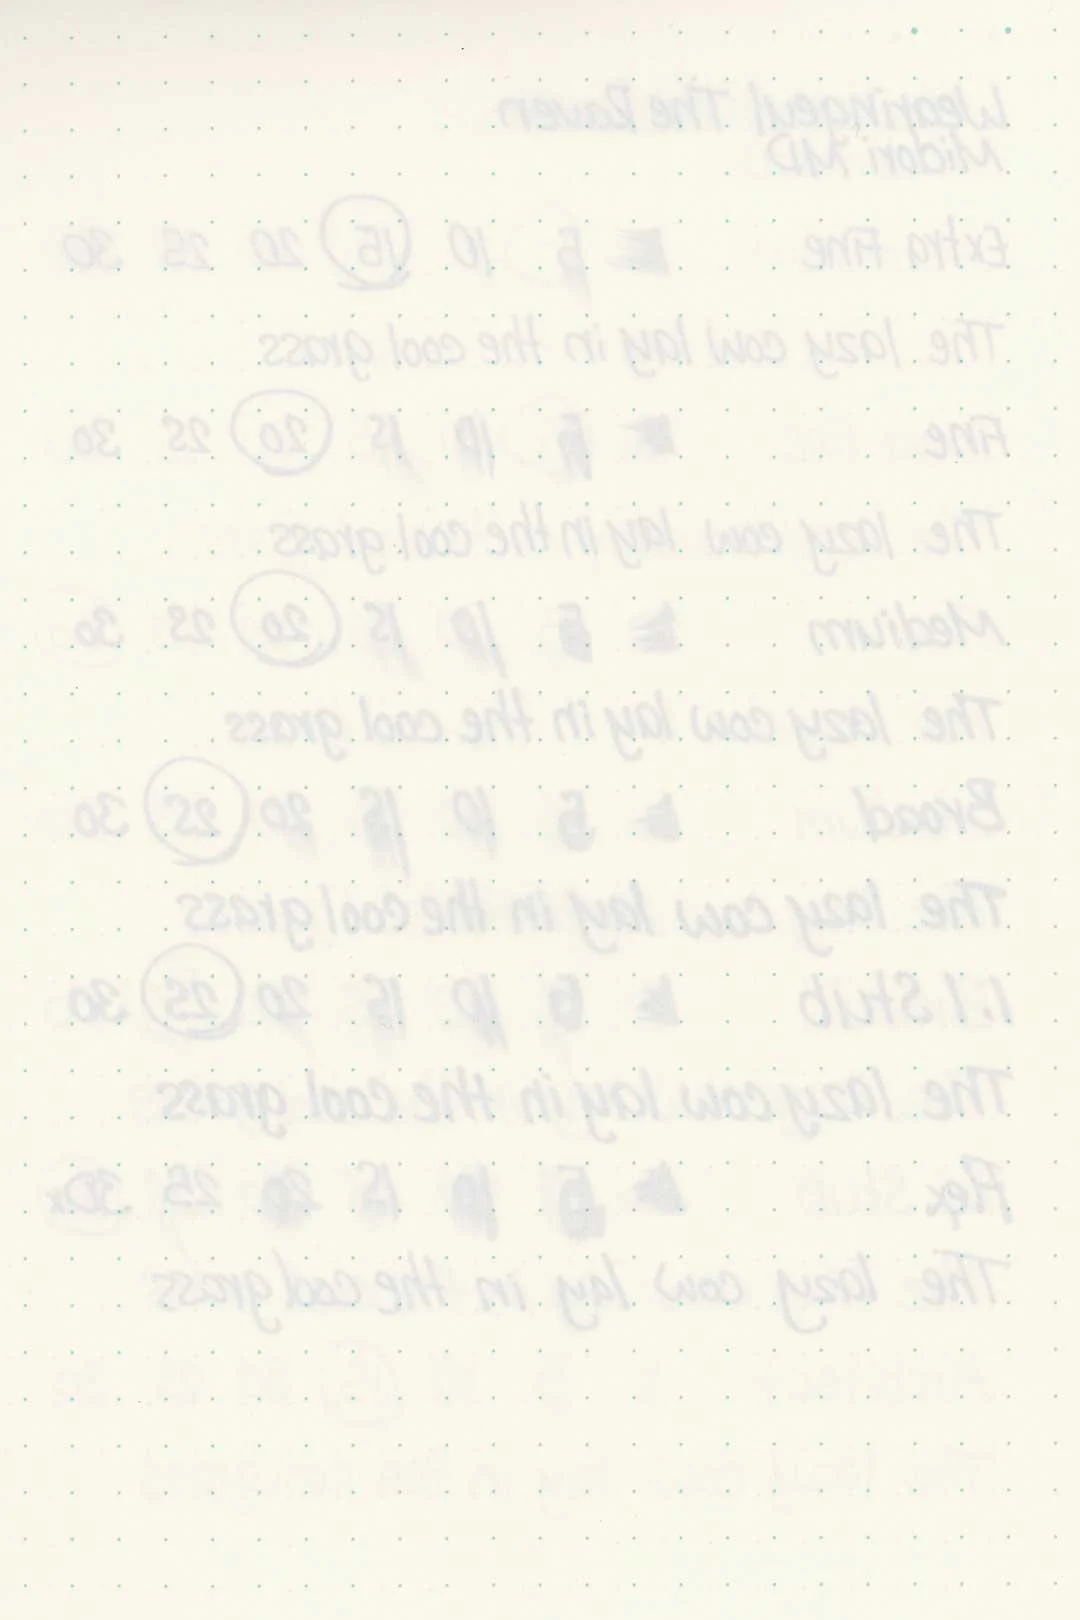 Wearingeul The Raven
Midori MD
Extra Fine 5 10 15 20 25 30
The lazy cow lay in the cool grass
Fine 5 10 15 20 25 30
The lazy cow lay in the cool grass
Medium 5 10 15 20 25 30
The lazy cow lay in the cool grass
Broad 5 10 15 20 25 30
The lazy cow lay in the cool grass
1.1 Stub 5 10 15 20 25 30
The lazy cow lay in the cool grass
Flex 5 10 15 20 25 30x
The lazy cow lay in the cool grass